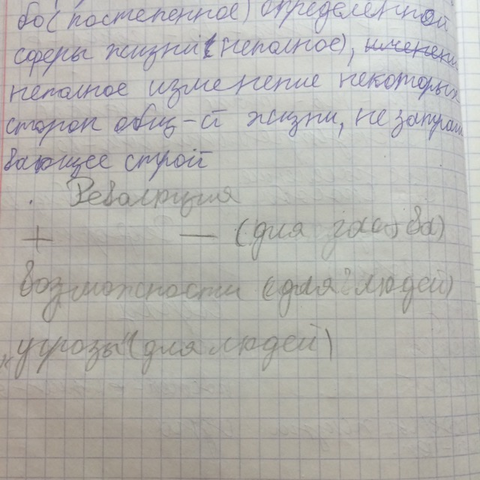 бо(постепенное) определенной
сферы жизни (неполное),
неполное изменение некоторых
сторон общ-й жизни, не затраги
вающее строй
. Революция
+ — (для
возможности (для людей)
"угрозы" (для людей)